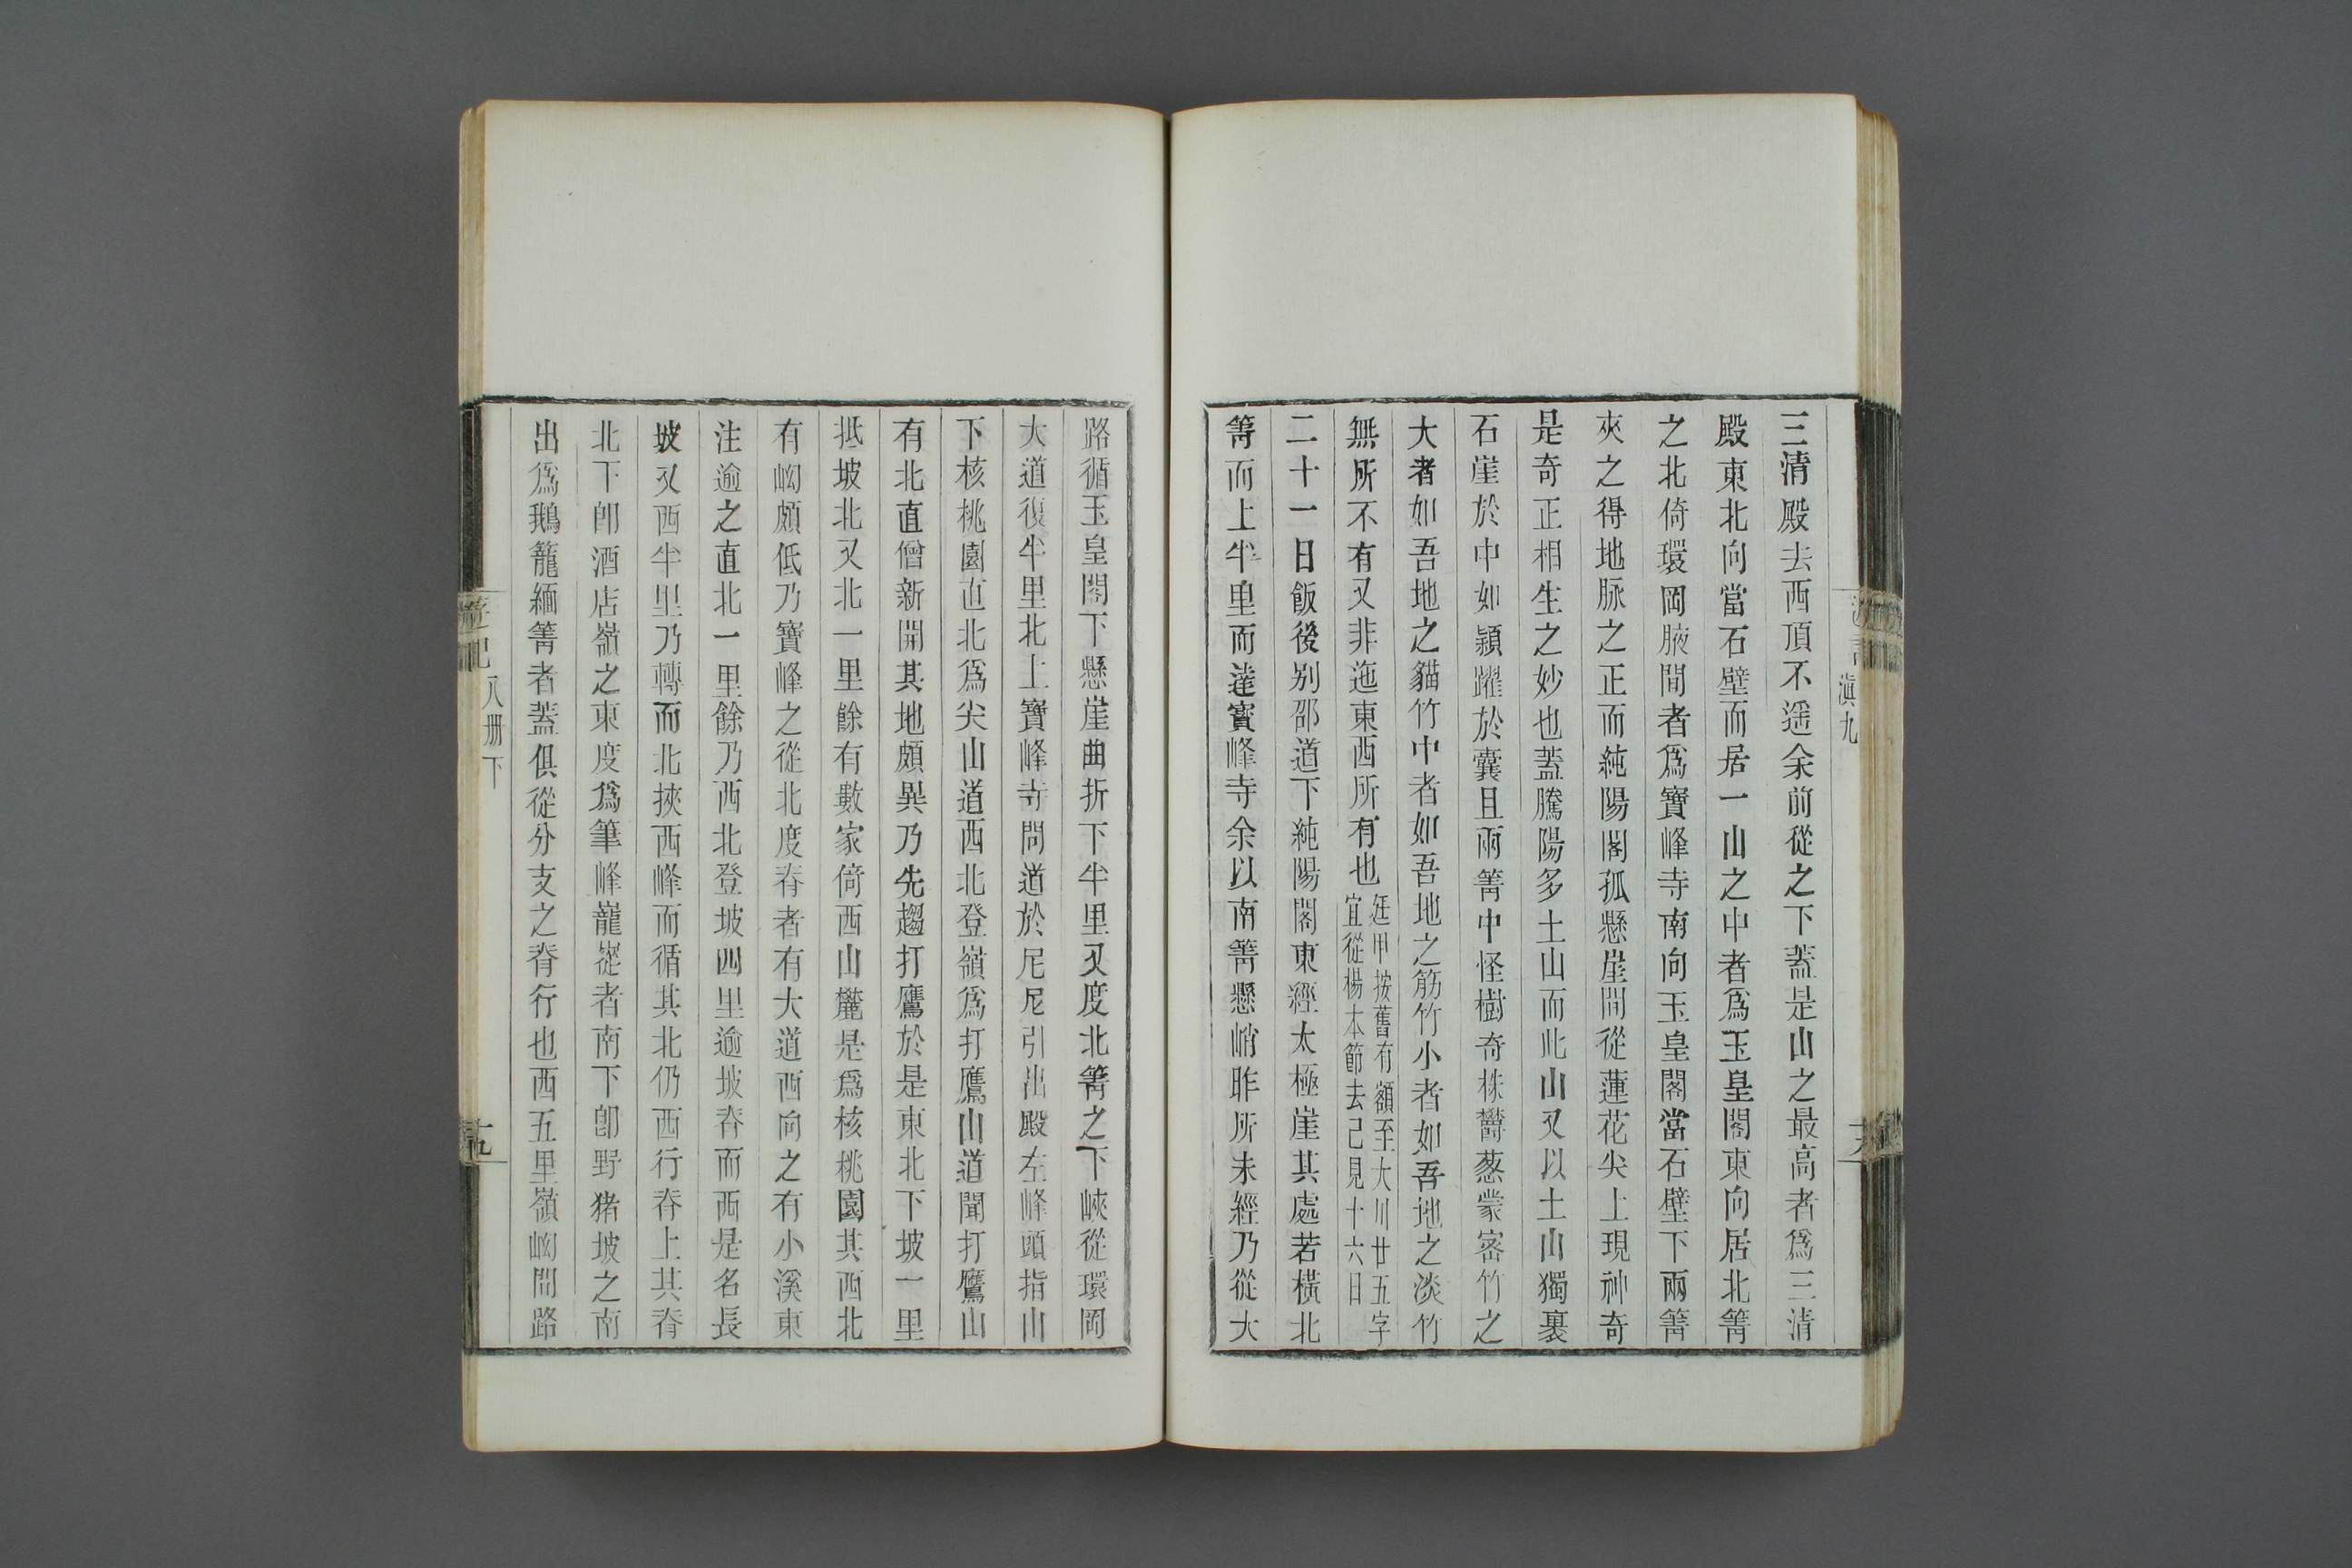 三清殿去西頂不遥余前從之下蓋是山之最高者爲三清
殿東北向當石壁而居一山之中者爲玉皇閣東向居北箐
之北倚環岡腋間者爲寶峰寺南向玉皇閣當石壁下兩箐
夾之得地脉之正而純陽閣孤懸崖間從蓮花尖上現神奇
是奇正相生之妙也蓋騰陽多土山而此山又以土山獨裹
石崖於中如穎躍於囊且兩箐中怪樹奇株鬱葱蒙密竹之
大者如吾地之貓竹中者如吾地之筋竹小者如吾地之淡竹
無所不有又非迤東西所有也
廷甲按舊有額至大川廿五字
宜從楊本節去已見十六日
二十一日飯後别邵道下純陽閣東經太極崖其處若横北
箐而上半里而達寳峰寺余以南箐懸峭昨所未經乃從大
路循玉皇閣下懸崖曲折下半里又度北箐之下峽從環岡
大道復半里北上寶峰寺問道於尼尼引出殿左峰頭指山
下核桃園直北爲尖山道西北登嶺爲打鷹山道聞打鷹山
有北直僧新開其地頗異乃先趨打鷹於是東北下坡一里
抵坡北又北一里餘有數家倚西山麓是爲核桃園其西北
有坳頗低乃寶峰之從北度脊者有大道西向之有小溪東
注逾之直北一里餘乃西北登坡四里逾坡脊而西是名長
坡又西半里乃轉而北挾西峰而循其北仍西行脊上其脊
北下卽酒店嶺之東度爲筆峰巃嵸者南下卽野猪坡之南
出爲鵝籠緬箐者蓋俱從分支之脊行也西五里嶺坳間路
滇九
遊記
八册下
十九